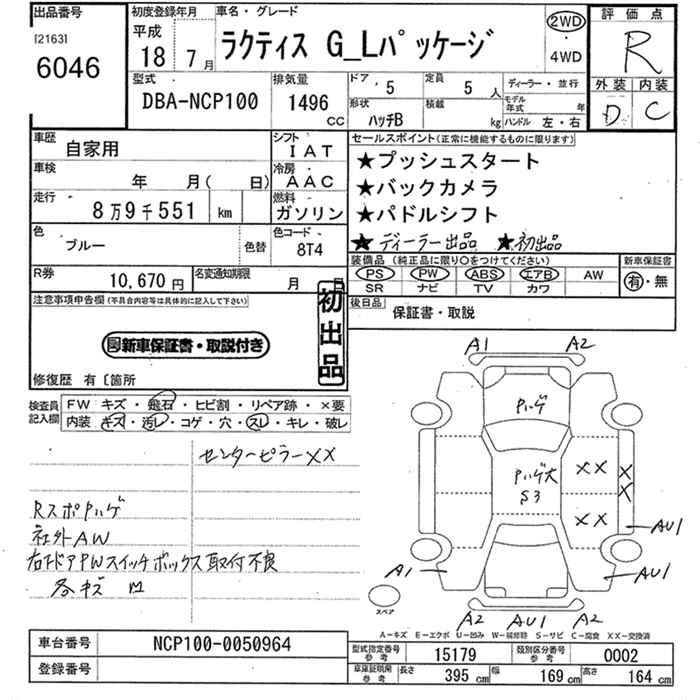 出品番号 [2163] 6046
初度登録年月 平成 18 年 7 月
車名・グレード ラクティス G_Lパッケージ
2WD ・ 4WD
評価点 R
外装 D 内装 C
型式 DBA-NCP100
排気量 1496 CC
ドア 5 定員 5 人
形状 ハッチB 積載 kg
ディーラー・並行
モデル年式 年
ハンドル 左・右
車歴 自家用
シフト IAT
車検 年 月( 日)
冷房 AAC
走行 8万9千551 km
燃料 ガソリン
色 ブルー 色替
色コード 8T4
R券 10,670 円
名変通知期限 月 日
セールスポイント(正常に機能するものに限ります)
★プッシュスタート
★バックカメラ
★パドルシフト
★ディーラー出品 ★初出品
装備品(純正品に限り○をつけてください)
PS PW ABS エアB AW
SR ナビ TV カワ
新車保証書 有・無
後日品 保証書・取説
注意事項申告欄(不具合内容等は具体的に記入して下さい)
新車保証書・取説付き
初出品
修復歴 有〔箇所
検査員記入欄
FW キズ・飛石・ヒビ割・リペア跡・×要
内装 キズ・汚レ・コゲ・穴・スレ・キレ・破レ
センターピラーXX
Rスポハゲ
社外AW
右FドアPWスイッチボックス取付不良
各キズ M
A1 A2
ハゲ
ハゲ大
S3
XX
XX
XX
AU1
A1 AU1
スペア
A2 AU1 A2
A-キズ E-エクボ U-凹み W-補修跡 S-サビ C-腐食 XX-交換済
車台番号 NCP100-0050964
登録番号
型式指定番号 参考 15179
類別区分番号 参考 0002
車庫証明用 参考 長さ 395 cm 幅 169 cm 高さ 164 cm